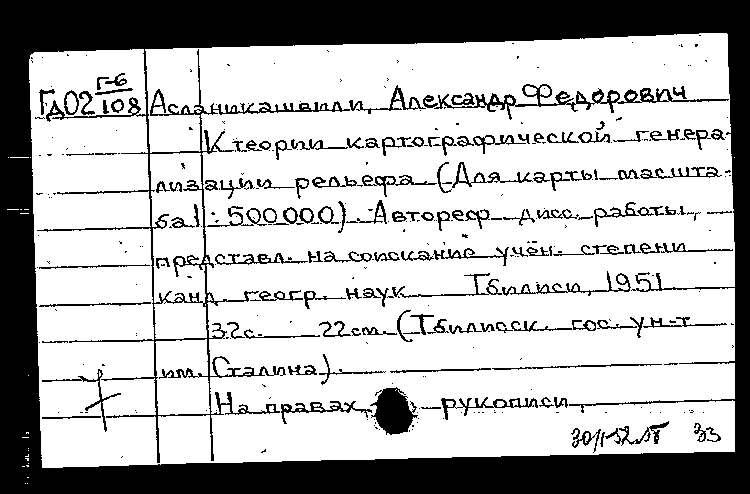 Г-6
ГД02 108 Асланикашвили, Александр Федорович
К теории картографической генера-
лизации рельефа. (Для карты масшта-
ба 1:500000). Автореф. дисс. работы,
представл. на соискание учён. степени
канд. геогр. наук. Тбилиси, 1951
32с. 22см. (Тбилисск. гос. ун-т
им. Сталина).
На правах рукописи.
33